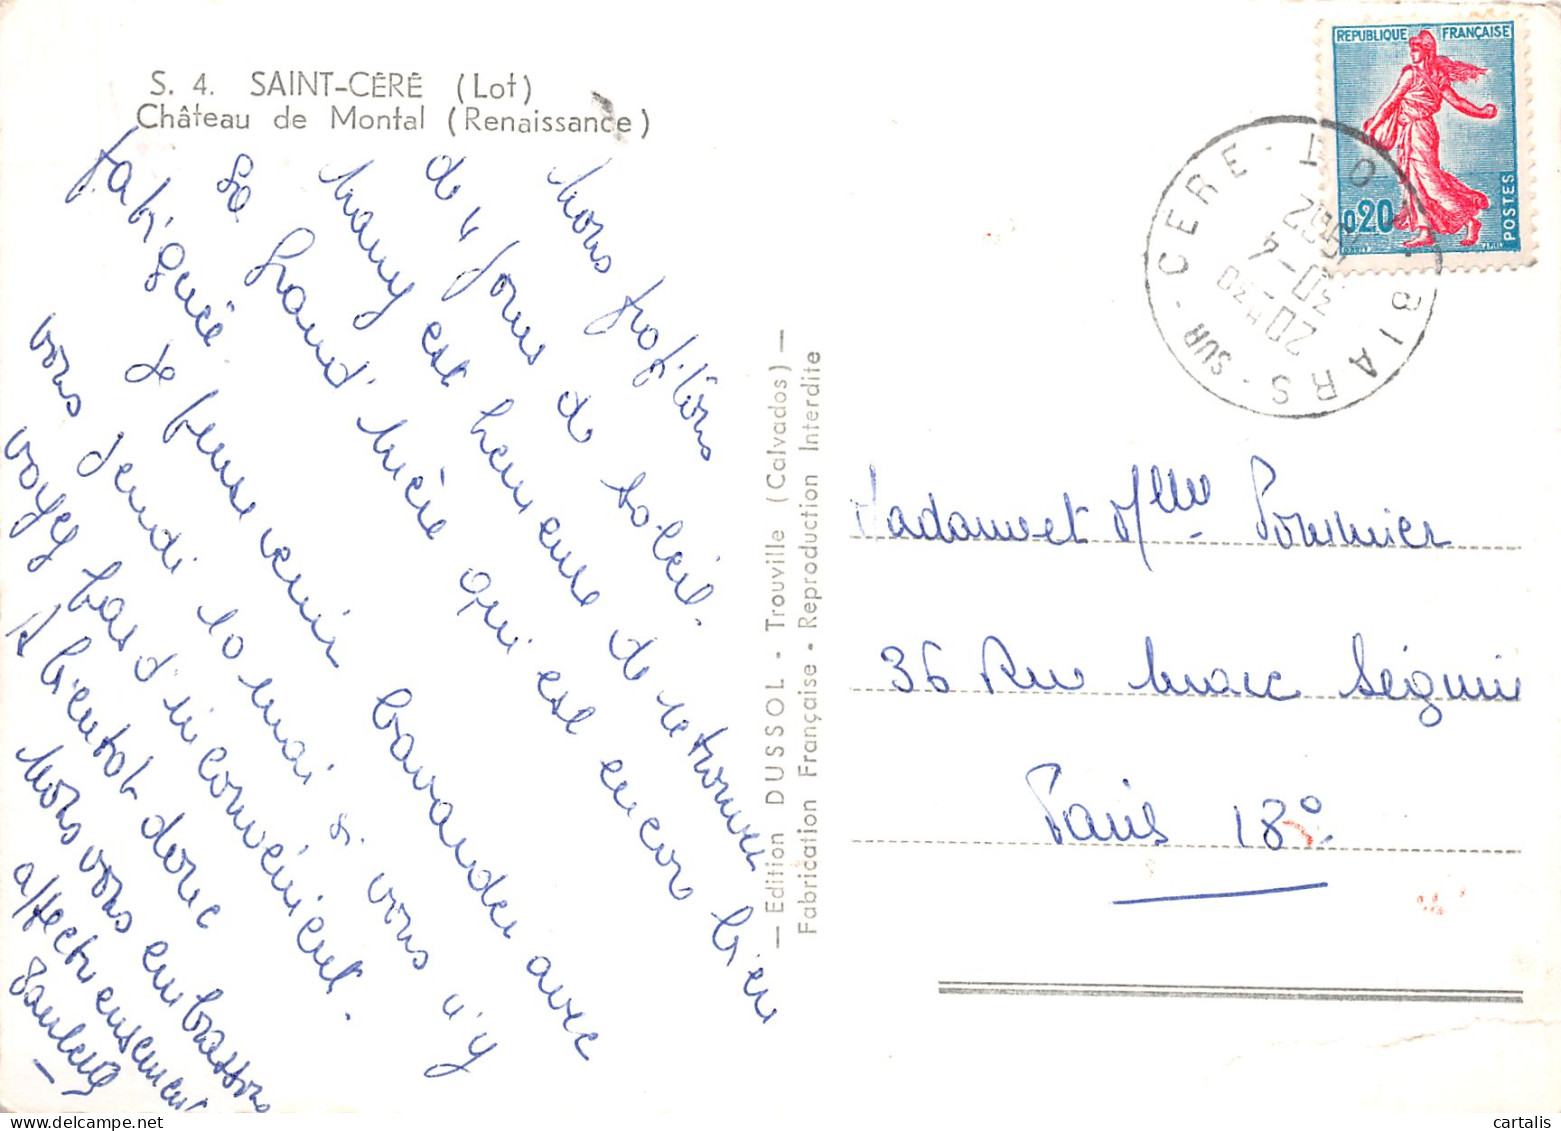 S. 4. SAINT-CÉRÉ (Lot)
Château de Montal (Renaissance)
Nous profitons
de 4 jours de soleil.
Mamy est heureuse de retrouver
sa grand'mère qui est encore bien
fatiguée. Je peux venir bavarder avec
vous jeudi 10 mai si vous n'y
voyez pas d'inconvénient.
A bientôt donc
Nous vous embrassons
affectueusement
— Edition DUSSOL - Trouville (Calvados) —
Fabrication Française - Reproduction Interdite
REPUBLIQUE FRANÇAISE
0,20
POSTES
BIARS - SUR - CERE - LOT
20-4
Madame et Mlle Pommier
36 Rue Marc Séguin
Paris 18e
cartalis